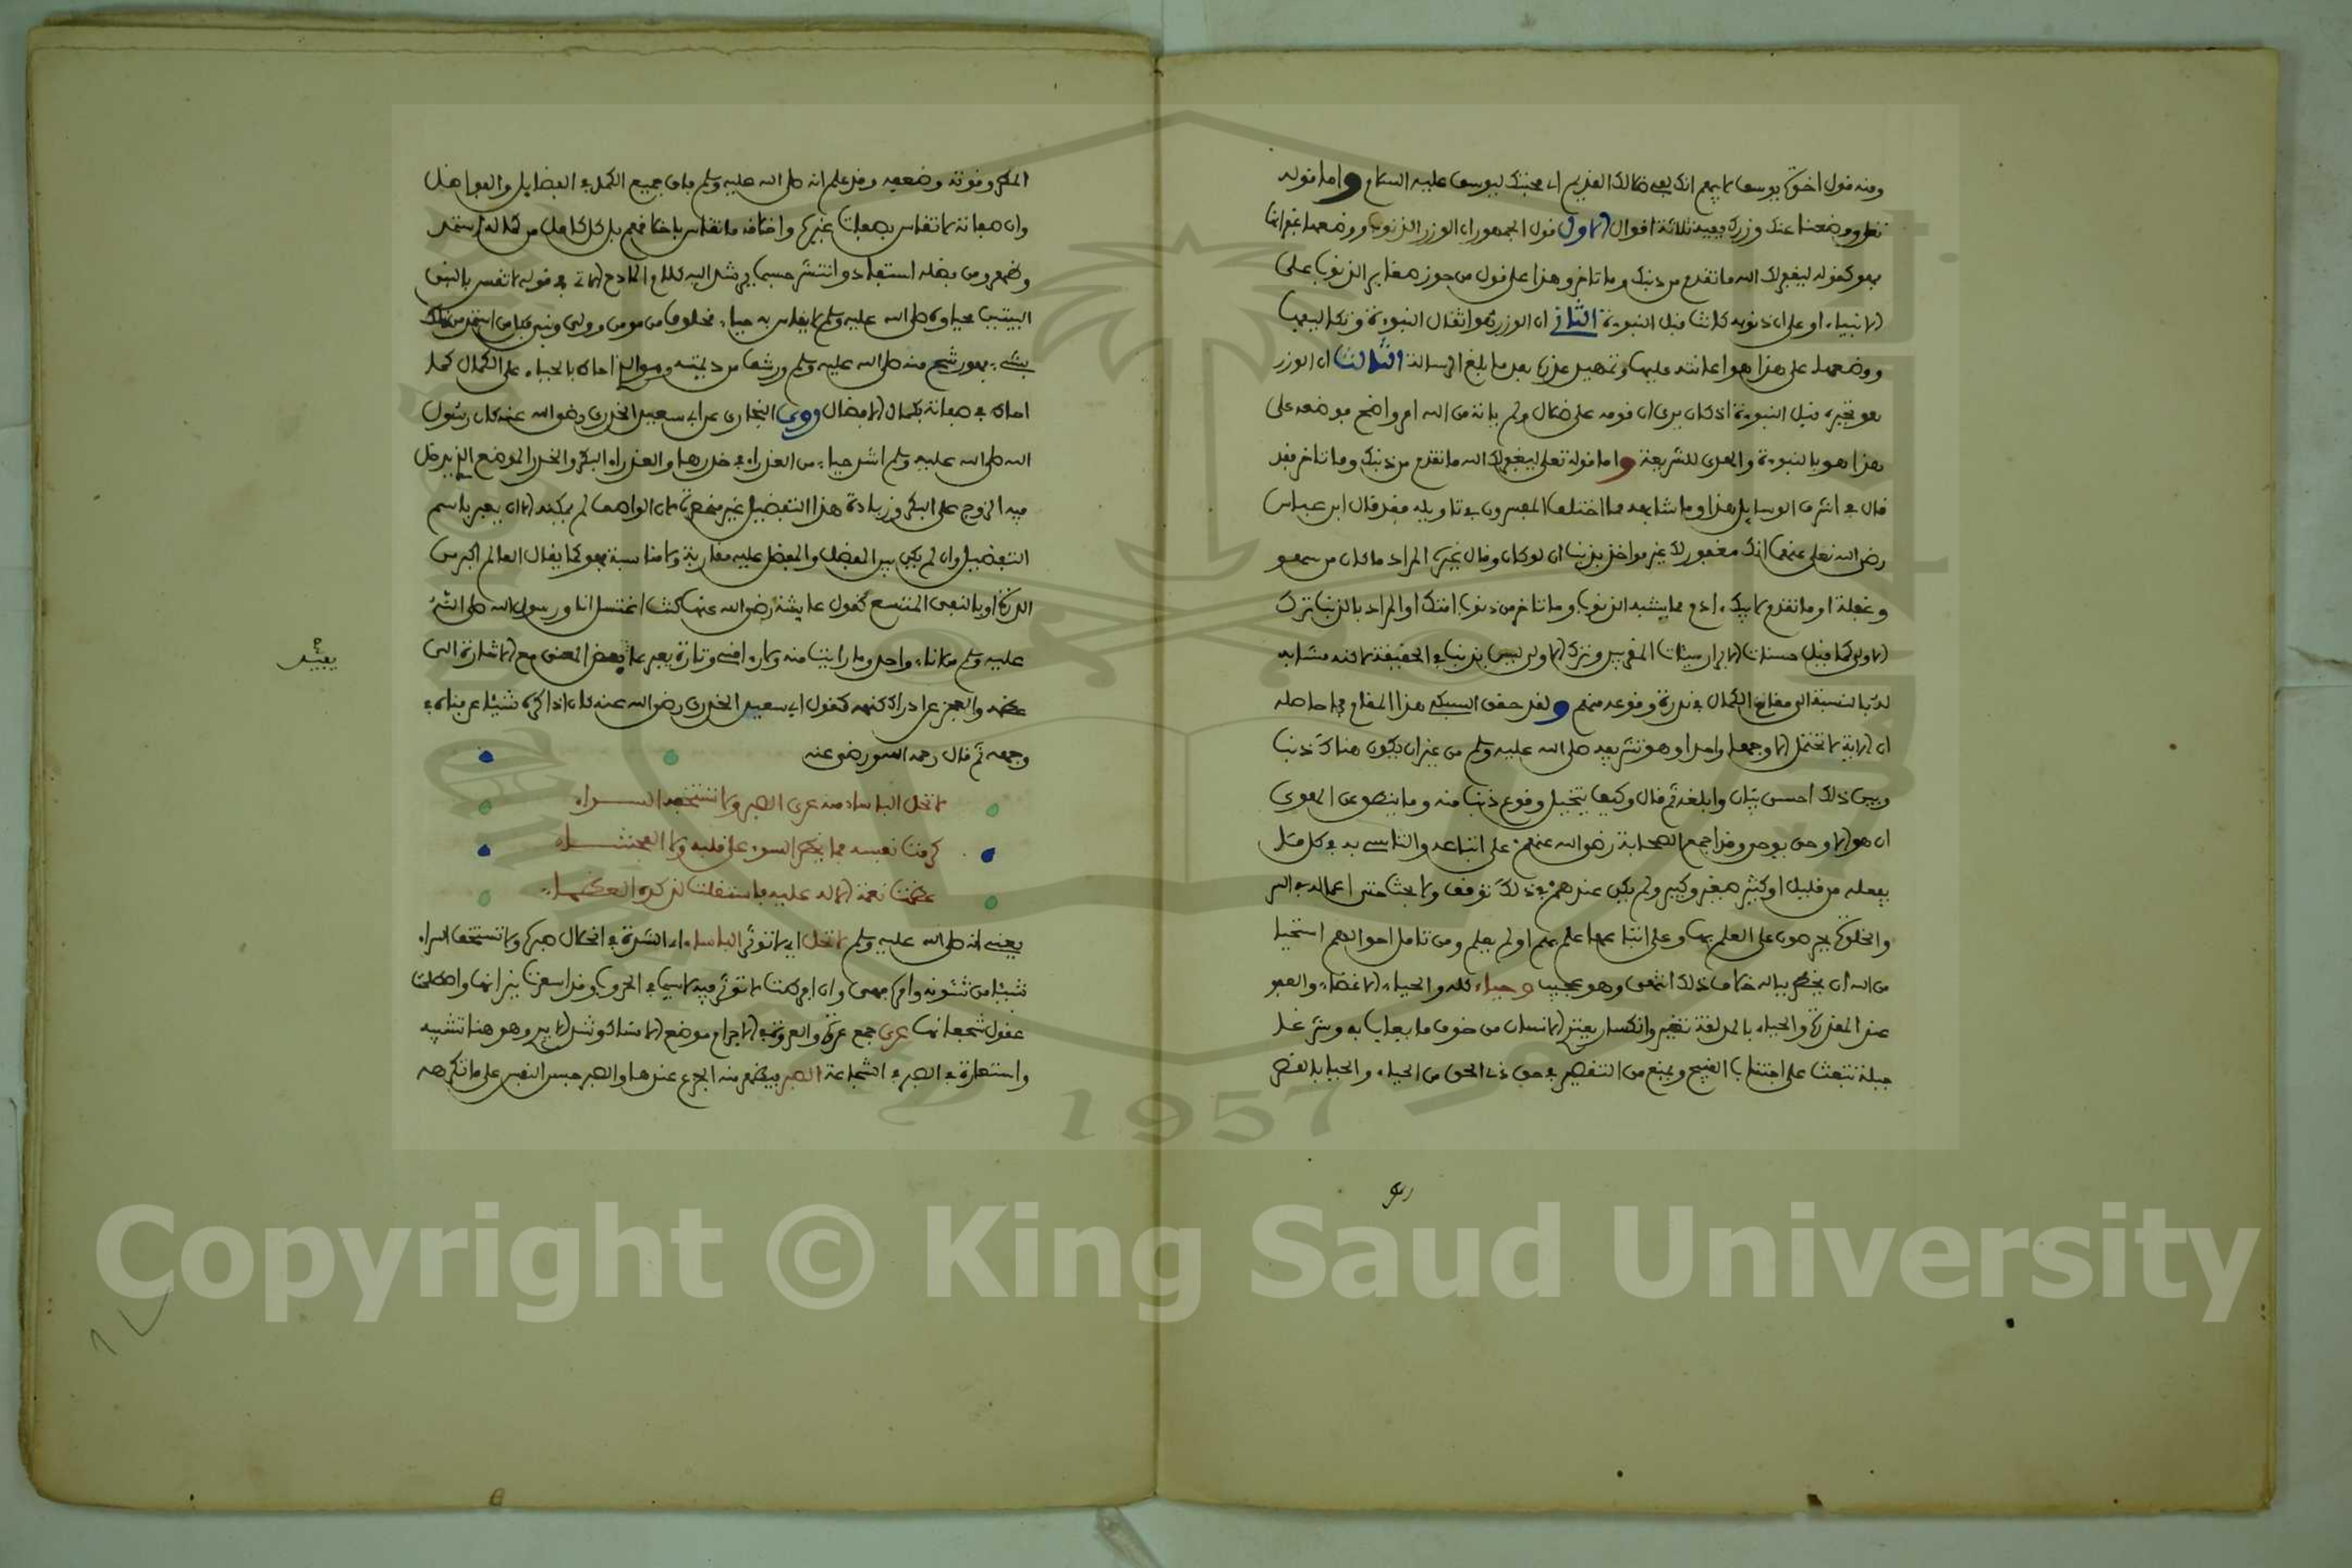 ومنه قول اخوة يوسف لابيهم انك لفي ضلالك القديم اي محبتك ليوسف عليه السلام واما قوله
تعلى ووضعنا عنك وزرك ففيه ثلاثة اقوال الاول قول الجمهور ان الوزر الذنوب ووضعها غفرانها
فهو كقوله ليغفر لك الله ما تقدم من ذنبك وما تاخر وهذا على قول من جوز صغاير الذنوب على
الانبياء او على ان ذنوبه كانت قبل النبوءة الثاني ان الوزر هو اثقال النبوءة وتكاليفها
ووضعها على هذا هو اعانته عليها وتمهيد عذره بعد ما بلغ الرسالة الثالث ان الوزر
هو تحيره قبل النبوءة اذ كان يرى ان قومه على ضلال ولم ياته من الله امر واضح فوضعه على
هذا هو بالنبوءة والهدى للشريعة واما قوله تعلى ليغفر لك الله ما تقدم من ذنبك وما تاخر فقد
قال في اشرف الوسايل هذا وما شابهه مما اختلف المفسرون في تاويله فقد قال ابن عباس
رضي الله تعلى عنهما انك مغفور لك غير مواخذ بذنب ان لو كان وقال غيره المراد ما كان من سهو
وغفلة او ما تقدم لابيك ادم مما يشبه الذنوب وما تاخر من ذنوب امتك او المراد بالذنب ترك
الاولى كما قيل حسنات الابرار سيئات المقربين وترك الاولى ليس بذنب في الحقيقة لاكنه مشابه
له بالنسبة الى مقام الكمال في ندرة وقوعه منهم ولقد حقق السبكي هذا المقام بما حاصله
ان الاية لا تحتمل الا وجها واحدا وهو تشريفه صلى الله عليه وسلم من غير ان يكون هناك ذنب
وبين ذلك احسن بيان وابلغه ثم قال وكيف يتخيل وقوع ذنب منه وما ينطق عن الهوى
ان هو الا وحي يوحى وقد اجمع الصحابة رضي الله عنهم على اتباعه والتاسي به في كل ما
يفعله من قليل او كثير صغير وكبير ولم يكن عندهم في ذلك توقف ولا بحث حتى اعماله في السر
والخلوة يحرصون على العلم بها وعلى اتباعها علم بهم او لم يعلم ومن تامل احوالهم استحيا
من الله ان يخطر بباله خلاف ذلك انتهى وهو عجيب وحياء كله والحياء الاغضاء والعفو
عند المقدرة والحياء بالمد لغة تغير وانكسار يعتري الانسان من خوف ما يعاب به وشرعا
جبلة تبعث على اجتناب القبيح وتمنع من التقصير في حق ذي الحق من الحياء والحيا بالقصر
المطر وقوته وضعفه وقد علم انه صلى الله عليه وسلم فاق جميع الكمل في الفضايل والفواضل
وان صفاته لا تقاس بصفات غيره واخلاقه لا تقاس باخلاقهم بل كل كامل من كماله استمد
البيتين محياه صلى الله عليه وسلم لا يقاس به حياء مخلوق من مومن وولي ونبي
بشيء فهو رشح منه صلى الله عليه وسلم ورشف من ديمته وهو الذي احاه بالحياء على الكمال كما
احاه في صفاته بكمال الافضال وروى البخاري عن ابي سعيد الخدري رضي الله عنه كان رسول
الله صلى الله عليه وسلم اشد حياء من العذراء في خدرها والعذراء البكر والخدر الموضع الذي يدخل
فيه الزوج على البكر وزيادة هذا التفضيل غير منحصرة لان الواصف لم يمكنه الا ان يعبر باسم
التفضيل وان لم يكن بين المفضل والمفضل عليه مقاربة ولا مناسبة فهو كما يقال العالم اكبر من
الذرة او بالنفي المتسع كقول عايشة رضي الله عنها كنت اغتسل انا ورسول الله صلى الله
عليه وسلم من اناء واحد وما رايت منه ولا راى مني وتارة يعبر على بعض المعنى مع الاشارة الى
عظمه والعجز عن ادراك كنهه كقول ابي سعيد الخدري رضي الله عنه كان اذا كره شيئا عرفناه في
وجهه ثم قال رحمه الله ورضي عنه
لا تحل الباساء منه عرى الصبر ولا تستخفه السراء
كرمت نفسه فما يخطر السوء على قلبه ولا الفحشاء
عظمت نعمة الاله عليه فاستقلت لذكره العظماء
يعني انه صلى الله عليه وسلم لا تحل اي لا توثر الباساء اي الشدة في انحلال صبره ولا تستخف السراء
شيئا من شئونه وان افرطت لا توثر فيه لا سيما في الحروب وقد اسعرت نيرانها واطلت
عقول شجعانها عرى جمع عروة والعروة في الاجرام موضع الامساك وشد الايدي وهو هنا تشبيه
واستعارة في الصبر في الشجاعة الصبر فيقطع منه الجزع عندها والصبر حبس النفس على ما تكرهه
Copyright © King Saud University
1957